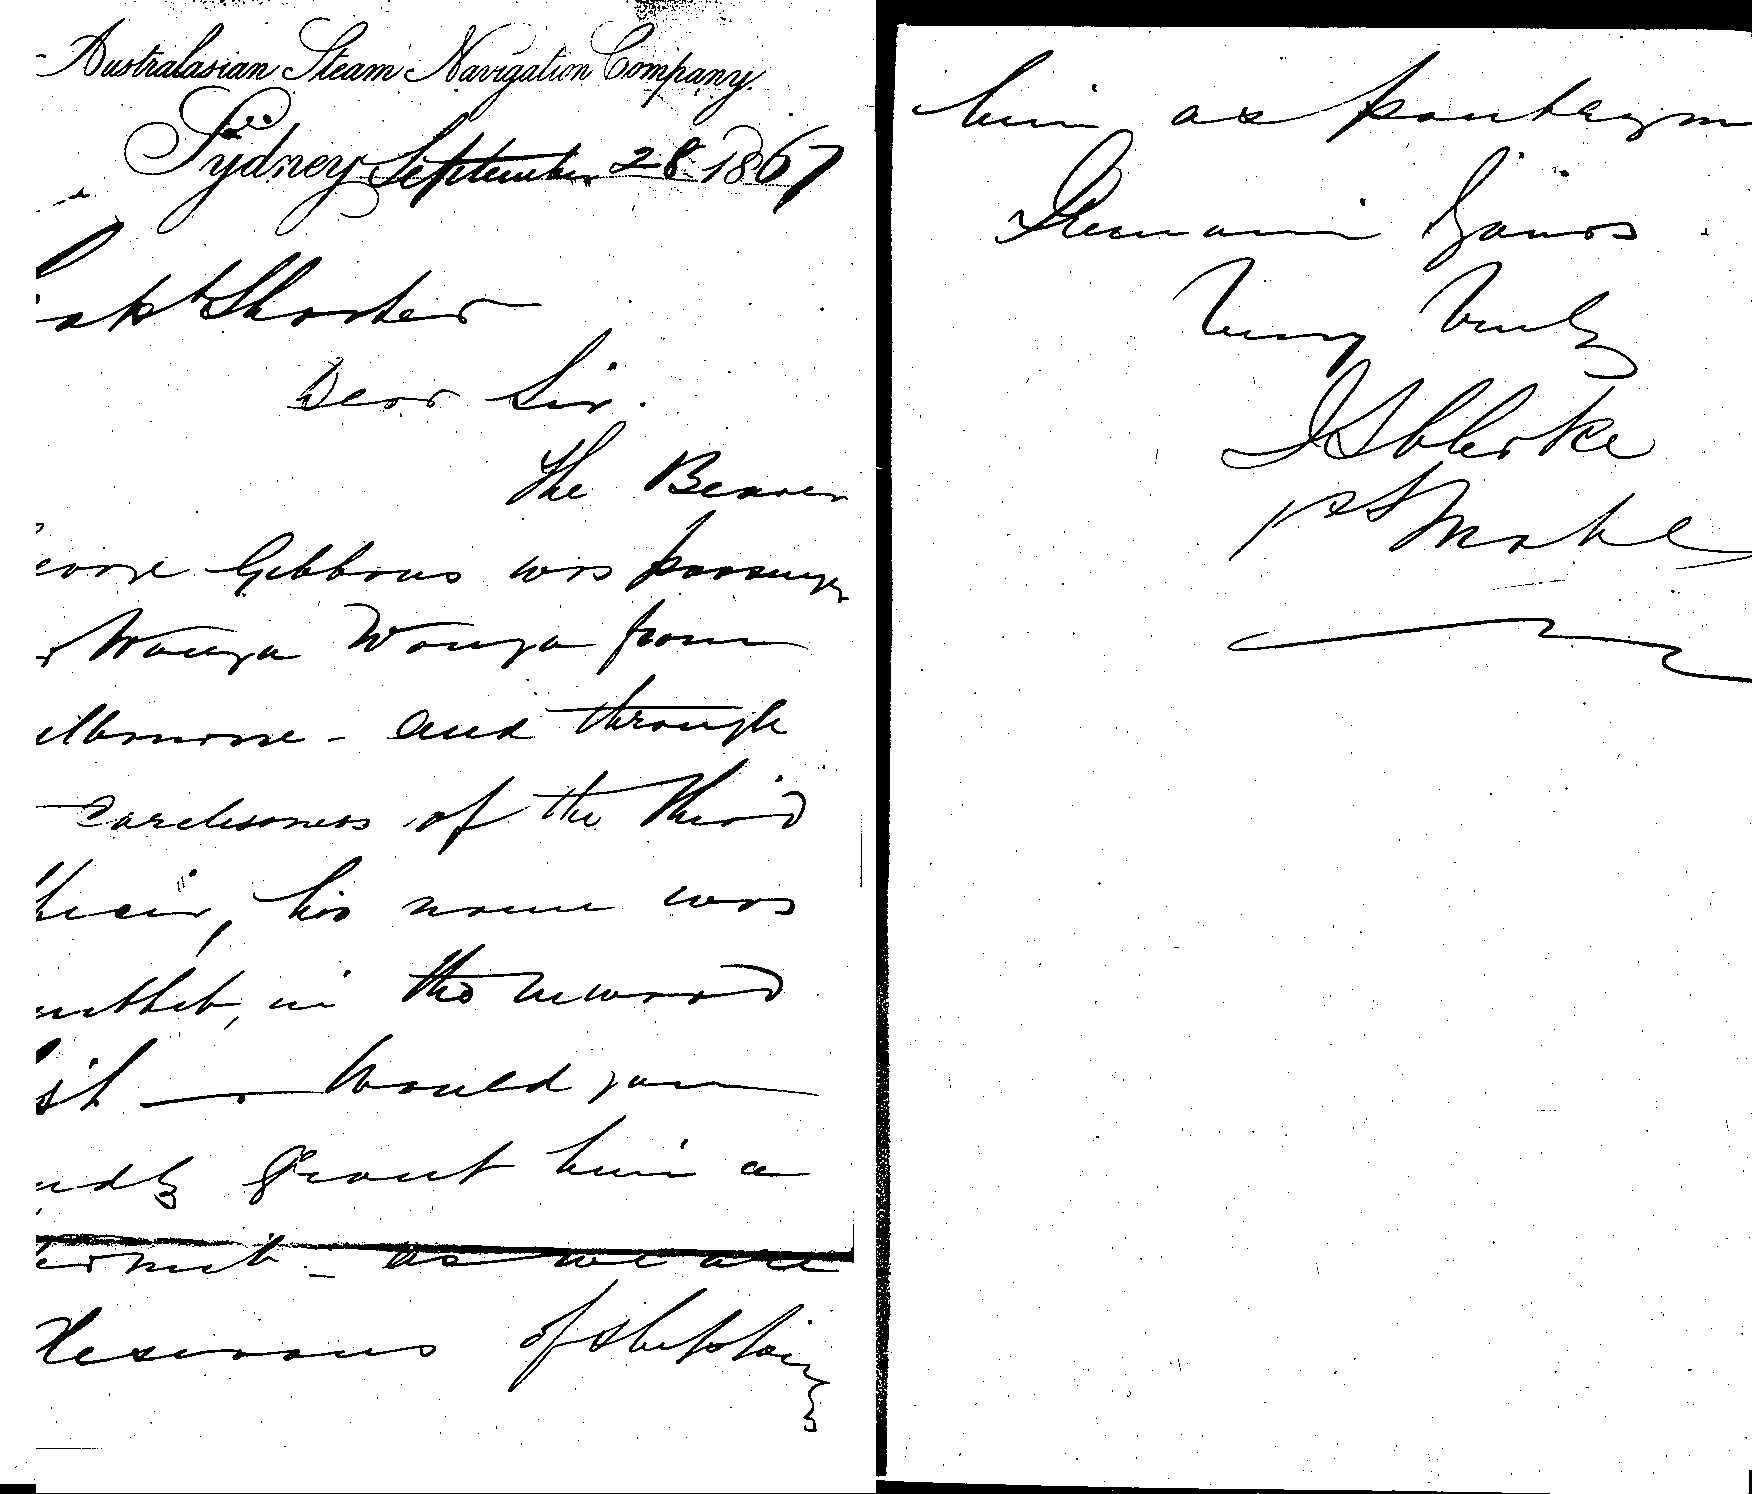 Australasian Steam Navigation Company.
Sydney September 28 1867
apt Shorter
Dear Sir.
The Bearer
eorge Gibbons was passenger
r Wonga Wonga from
elbourne - and through
carelessness of the third
his name was
in the inward
ist - Would you
ndly grant him a
ermit - as we are
desirous of shipping
him as pantrym
Remain Yours
Very Truly
Clarke
1st Mate